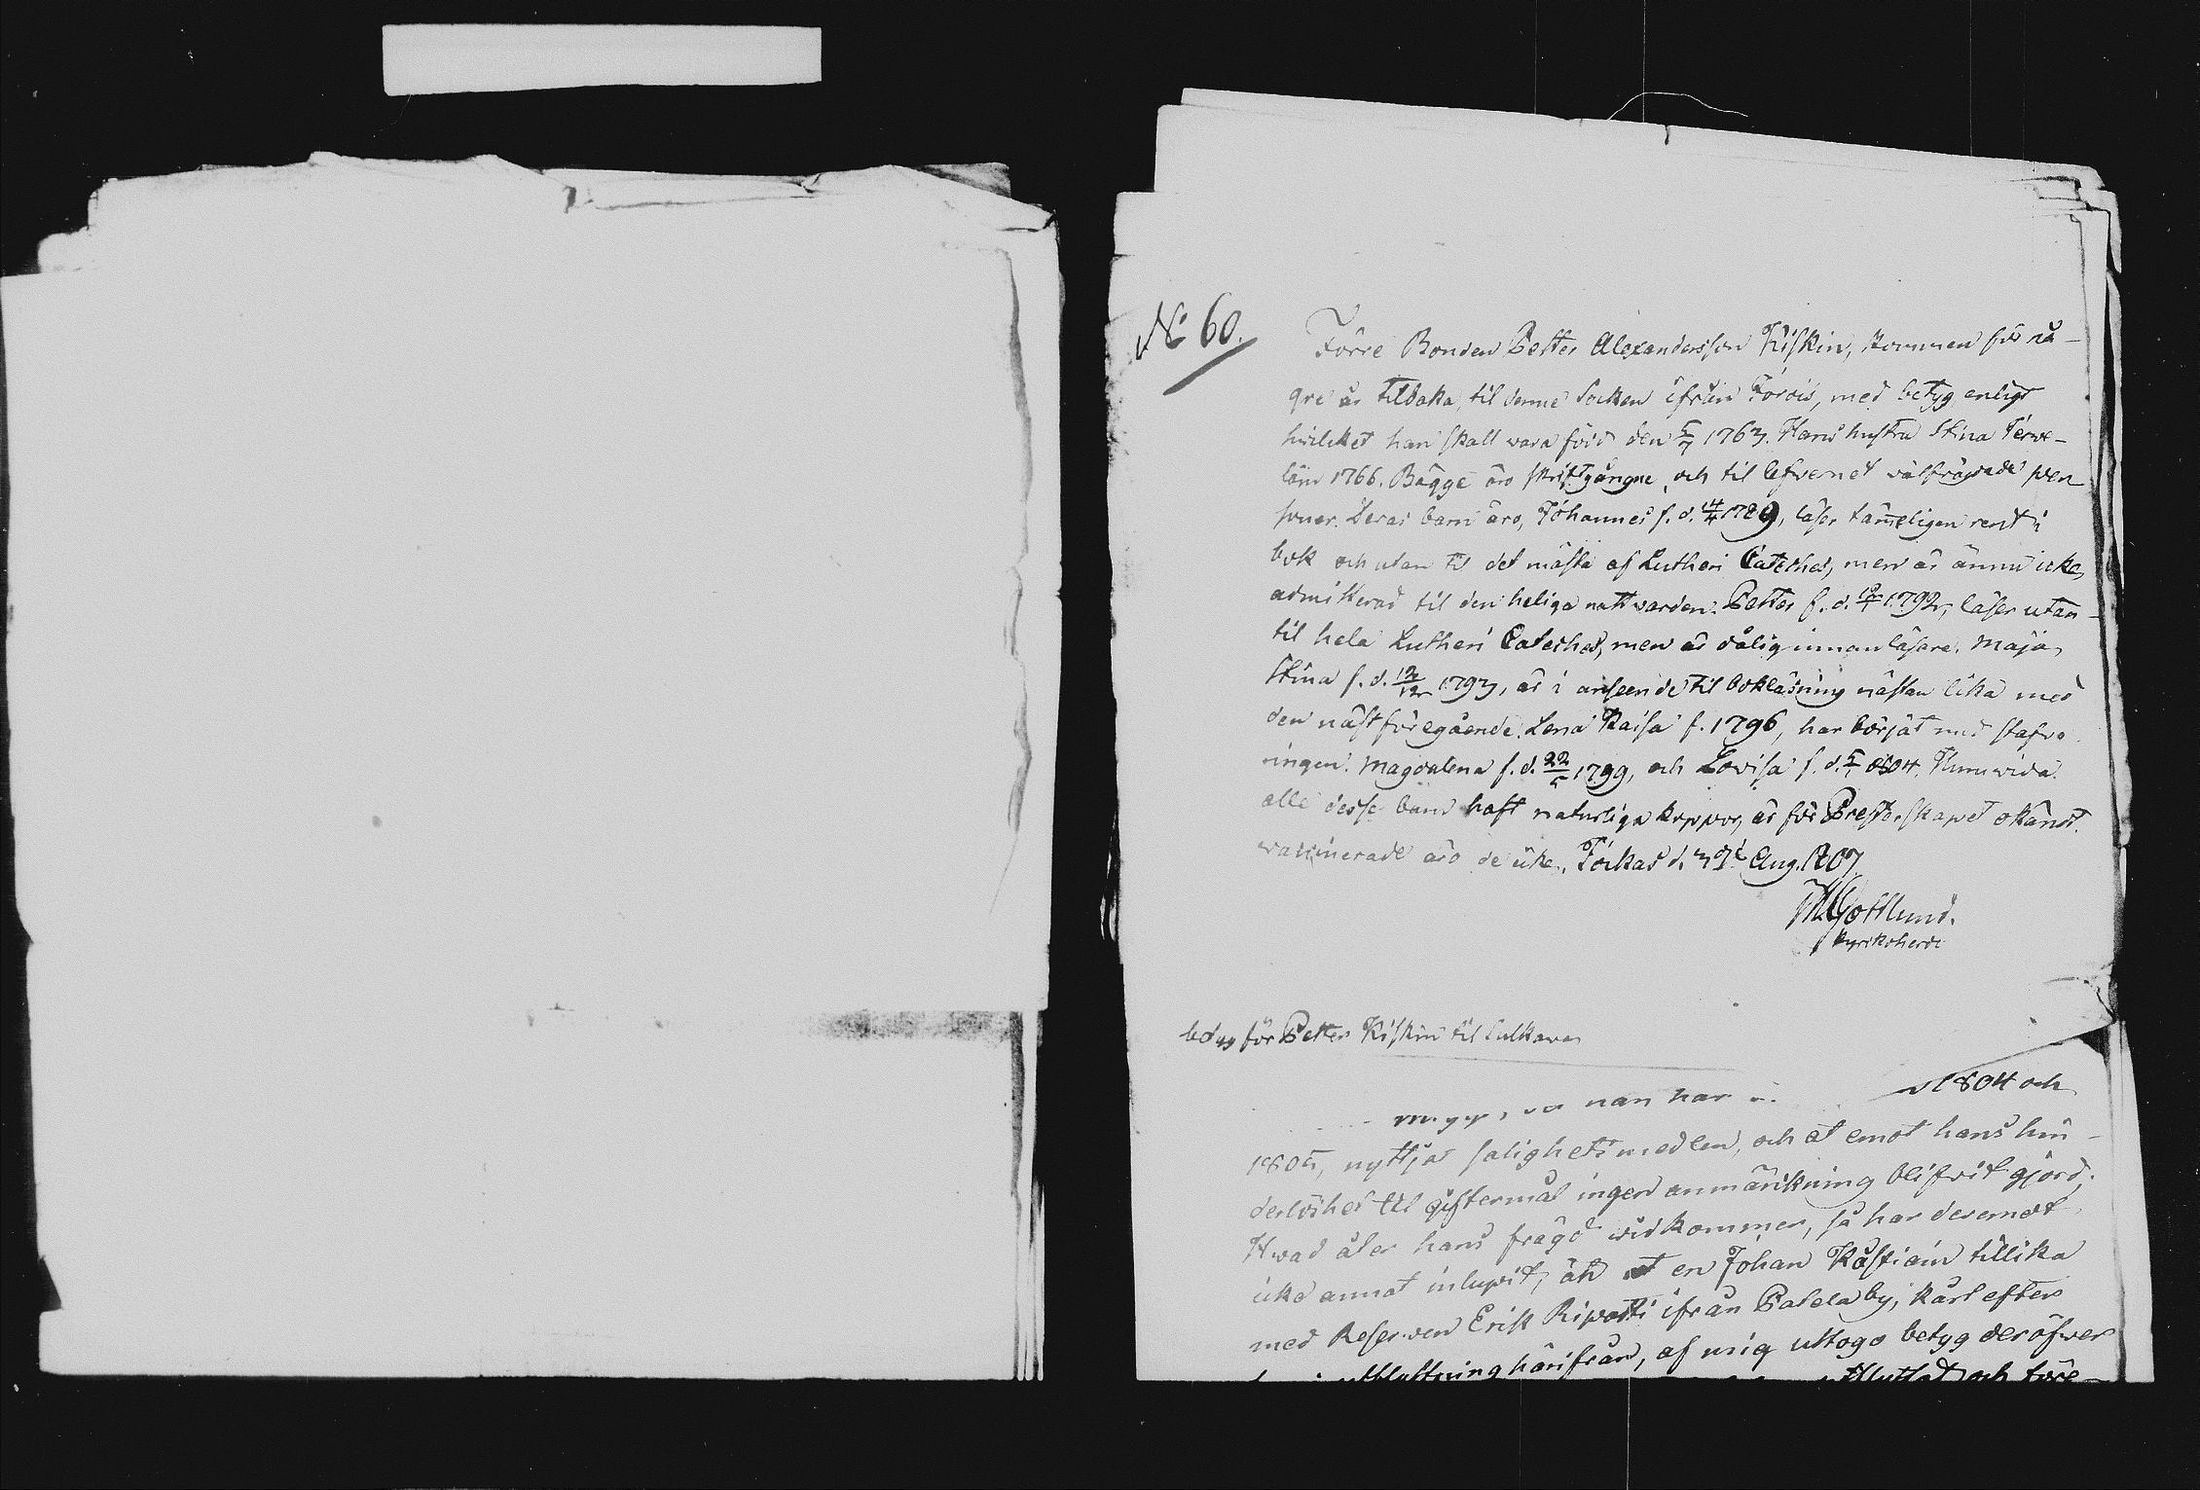 No 60.
Förre Bonden Petter Alexandersson Kiskin, kommen för nå-
gre år tilbaka, til denne Socken ifrån Jorois, med betyg enligt
hvilket han skall wara född den 5/7 1763. Hans hustru Stina Terwe-
läin 1766. Bägge äro skriftgångne, och til lefvernet wälfrägdade per-
soner. Deras barn äro, Johannes f. d. 14/4 1789, läser tämmeligen rent i
bok och utan til det mästa af Lutheri Cateches, men är ännu icke
admitterad til den heliga nattwarden. Petter f. d. 12/1 1792, läser utan-
til hela Lutheri Cateches, men är dålig innanläsare. Maja
Stina f. d. 12/12 1793, är i anseende til bokläsning nästan lika med
den näst föregående. Lena Kaisa f. 1796, har börjat med stafve
ningen. Magdalena f. d. 22/5 1799, och Lovisa f. d. 5/1 1804. Huruwida
alle desse barn haft naturliga koppor, är för Presterskapet okändt.
waccinerade äro de icke. Jockas d. 31 Aug. 1807
M. Gottlund.
Kyrkoherde
för Petter Kiskin til Sulkava
han har 1804 och
1805, nyttjat salighetsmedlen, och at emot hans hin-
derlöshet til giftermål ingen anmärkning blifvit gjord.
Hwad åter hans frägd widkommer, så har deremot
icke annat inlupit, än at en Johan Kästiäin tillika
med Reserven Erik Ripatti ifrån Patela by, kårt efter
utflyttning härifrån, af mig uttogo betyg deröfwer
utflyttat och före-